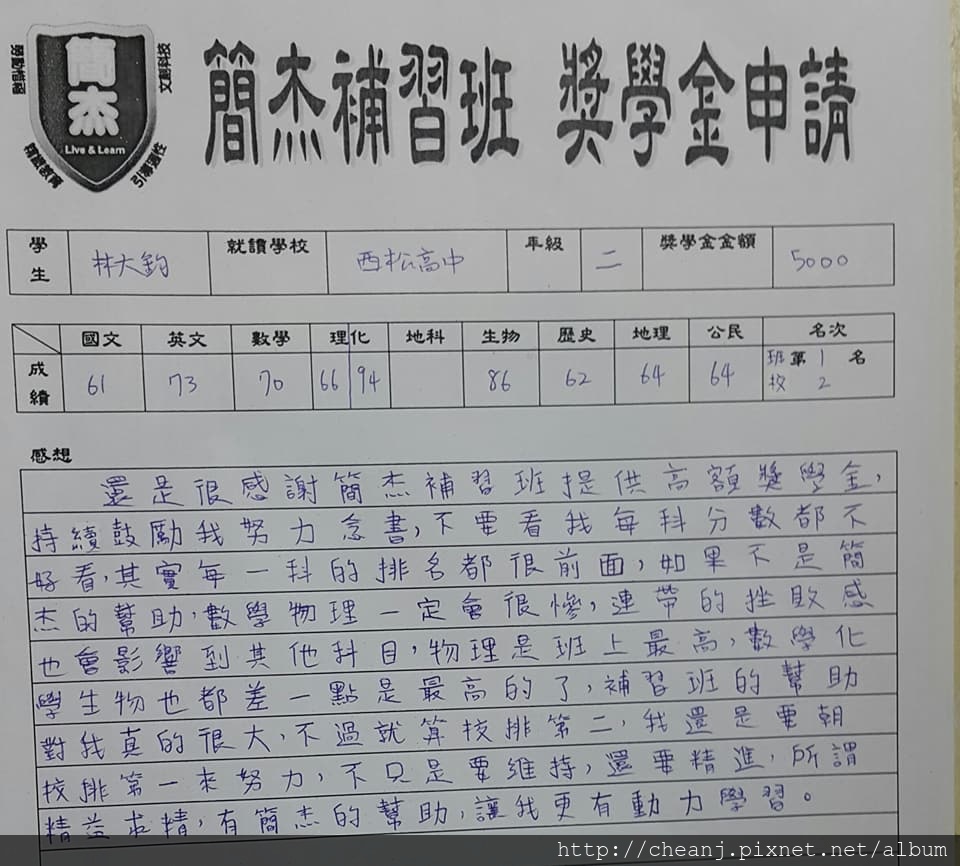 簡杰
Live & Learn
簡杰補習班 獎學金申請
學生 林大鈞 就讀學校 西松高中 年級 二 獎學金金額 5000
國文 英文 數學 理化 地科 生物 歷史 地理 公民 名次
成績 61 73 70 66 94 86 62 64 64 班第1名
校 2
感想
還是很感謝簡杰補習班提供高額獎學金,
持續鼓勵我努力念書,不要看我每科分數都不
好看,其實每一科的排名都很前面,如果不是簡
杰的幫助,數學物理一定會很慘,連帶的挫敗感
也會影響到其他科目,物理是班上最高,數學化
學生物也都差一點是最高的了,補習班的幫助
對我真的很大,不過就算校排第二,我還是要朝
校排第一來努力,不只是要維持,還要精進,所謂
精益求精,有簡杰的幫助,讓我更有動力學習。
http://cheanj.pixnet.net/album